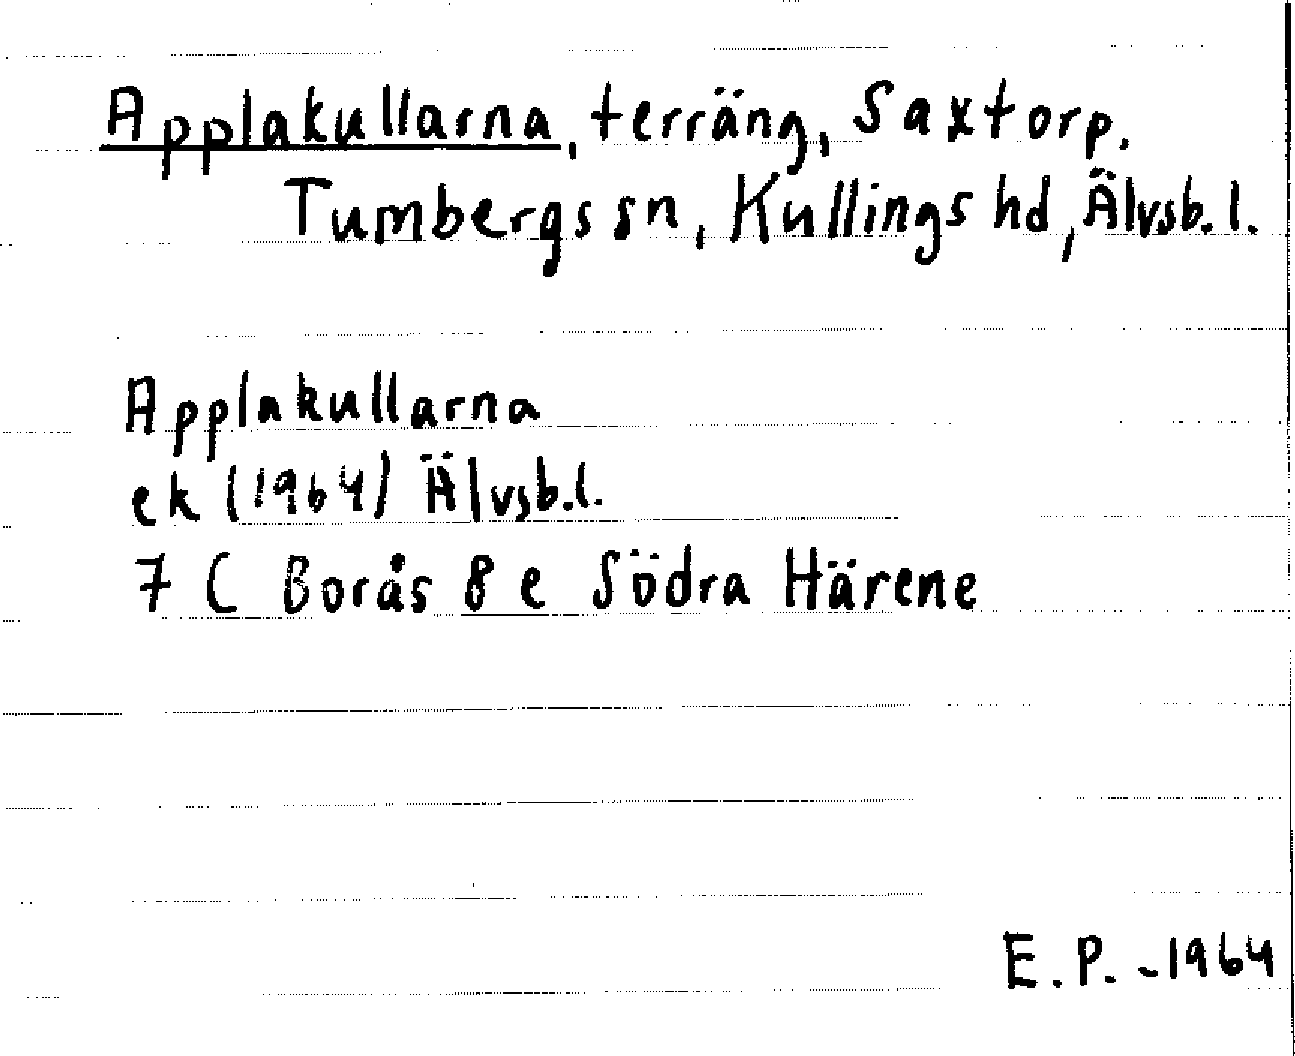 Applakullarna, terräng, Saxtorp.
Tumbergs sn, Kullings hd, Älvsb. l.
Applakullarna
ek (1964) Älvsb.l.
7 C Borås 8 e Södra Härene
E. P. - 1964